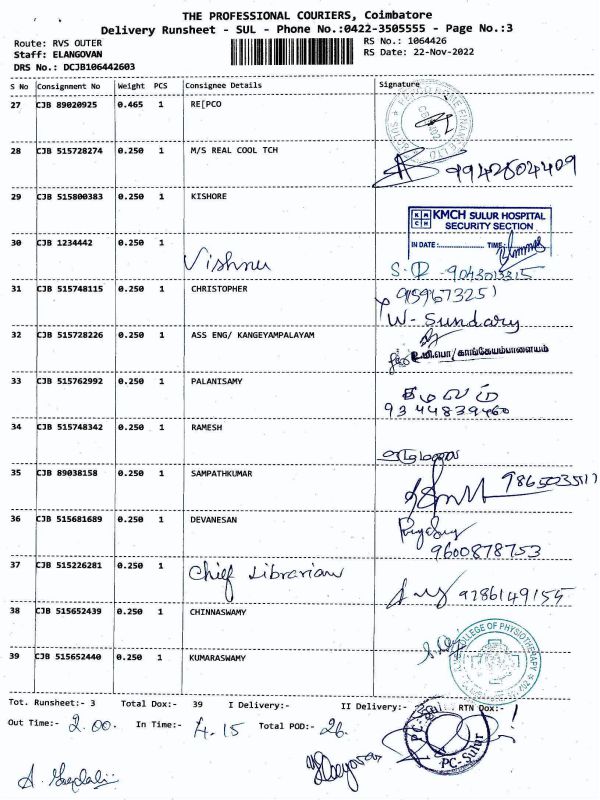 THE PROFESSIONAL COURIERS, Coimbatore
Delivery Runsheet - SUL - Phone No.:0422-3505555 - Page No.:3
Route: RVS OUTER
RS No.: 1064426
Staff: ELANGOVAN
RS Date: 22-Nov-2022
DRS No.: DCJB106442603
S No Consignment No Weight PCS Consignee Details Signature
27 CJB 89020925 0.465 1 RE[PCO
28 CJB 515728274 0.250 1 M/S REAL COOL TCH 9942504409
29 CJB 515800383 0.250 1 KISHORE
KMCH SULUR HOSPITAL
SECURITY SECTION
IN DATE: TIME:
30 CJB 1234442 0.250 1 Vishnu
31 CJB 515748115 0.250 1 CHRISTOPHER 9159673251
W- Sundary
32 CJB 515728226 0.250 1 ASS ENG/ KANGEYAMPALAYAM
33 CJB 515762992 0.250 1 PALANISAMY
கமலம்
9344839460
34 CJB 515748342 0.250 1 RAMESH
35 CJB 89038158 0.250 1 SAMPATHKUMAR
36 CJB 515681689 0.250 1 DEVANESAN
9600878753
37 CJB 515226281 0.250 1 Chief Librarian 9786149155
38 CJB 515652439 0.250 1 CHINNASWAMY
COLLEGE OF PHYSIOTHERAPY
39 CJB 515652440 0.250 1 KUMARASWAMY
Tot. Runsheet:- 3 Total Dox:- 39 I Delivery:- II Delivery:- RTN Dox:-
Out Time:- 2.00. In Time:- 4.15 Total POD:- 26.
PC-Sulur